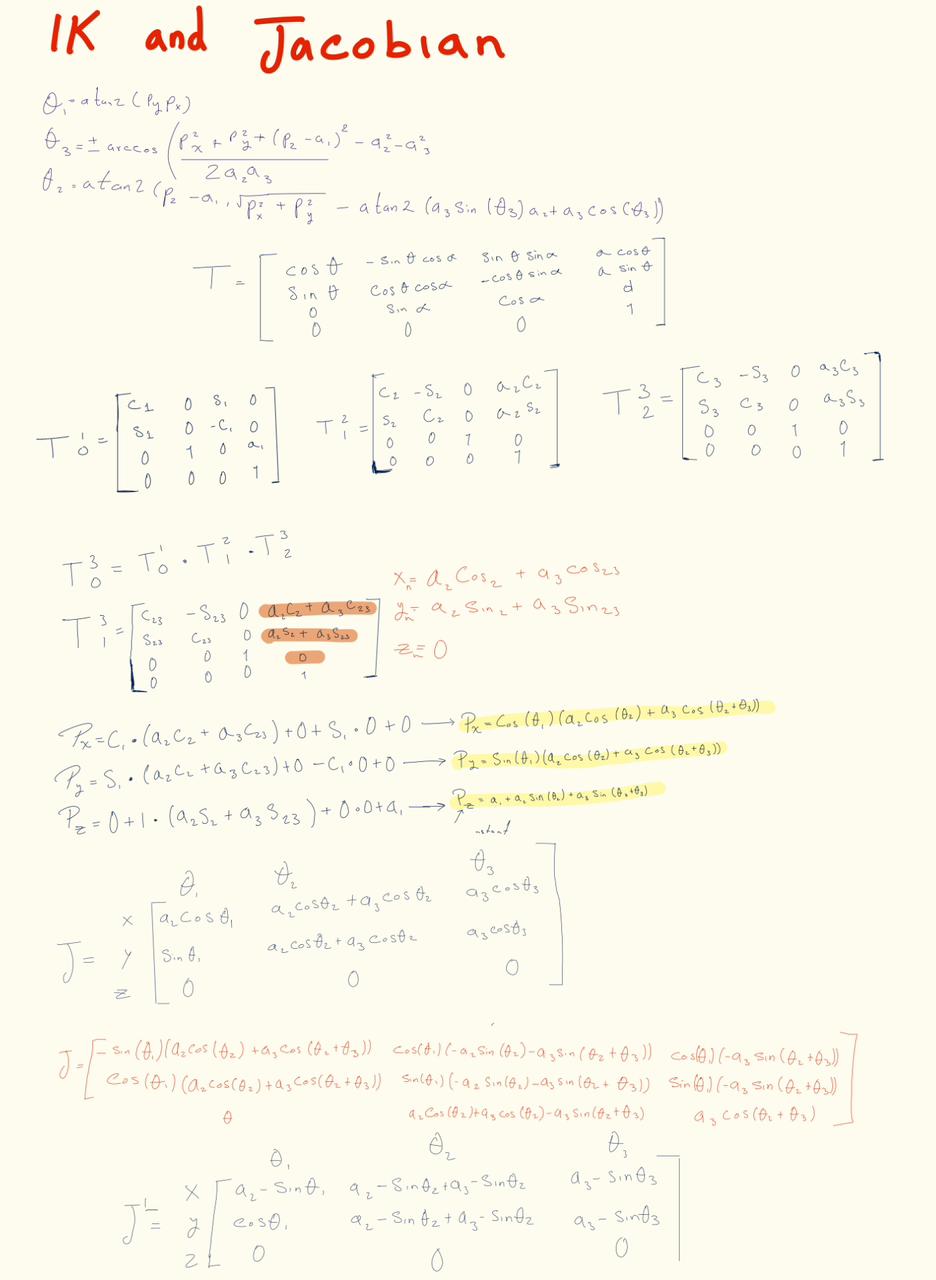 IK and Jacobian
θ₁ = atan2(Py Px)
θ₃ = ± arccos (Px² + Py² + (Pz - a₁)² - a₂² - a₃² / 2a₂a₃
θ₂ = atan2(Pz - a₁, √Px² + Py² - atan2(a₃ sin(θ₃) a₂ + a₃ cos(θ₃))
T = [ cos θ  - sin θ cos α  sin θ sin α  a cos θ
sin θ  cos θ cos α  -cos θ sin α  a sin θ
0  sin α  cos α  d
0  0  0  1 ]
T₀¹ = [ C1  0  S₁  0
S1  0  -C₁  0
0  1  0  a₁
0  0  0  1 ]
T₁² = [ C₂  -S₂  0  a₂C₂
S₂  C₂  0  a₂S₂
0  0  1  0
0  0  0  1 ]
T₂³ = [ C₃  -S₃  0  a₃C₃
S₃  C₃  0  a₃S₃
0  0  1  0
0  0  0  1 ]
T₀³ = T₀¹ · T₁² · T₂³
T₁³ = [ C₂₃  -S₂₃  0  a₂C₂ + a₃C₂₃
S₂₃  C₂₃  0  a₂S₂ + a₃S₂₃
0  0  1  0
0  0  0  1 ]
xₙ = a₂ Cos₂ + a₃ cos₂₃
yₙ = a₂ Sin₂ + a₃ Sin₂₃
zₙ = 0
Px = C₁ · (a₂C₂ + a₃C₂₃) + 0 + S₁ · 0 + 0 → Px = Cos(θ₁)(a₂ cos(θ₂) + a₃ cos(θ₂+θ₃))
Py = S₁ · (a₂C₂ + a₃C₂₃) + 0 - C₁ · 0 + 0 → Py = Sin(θ₁)(a₂ cos(θ₂) + a₃ cos(θ₂+θ₃))
Pz = 0 + 1 · (a₂S₂ + a₃S₂₃) + 0·0 + a₁ → Pz = a₁ + a₂ sin(θ₂) + a₃ sin(θ₂+θ₃)
θ₁  θ₂  θ₃
J = x [ a₂ cos θ₁  a₂ cos θ₂ + a₃ cos θ₂  a₃ cos θ₃
y  sin θ₁  a₂ cos θ₂ + a₃ cos θ₂  a₃ cos θ₃
z  0  0  0 ]
J = [ - sin(θ₁)(a₂ cos(θ₂) + a₃ cos(θ₂+θ₃))  cos(θ₁)(-a₂ sin(θ₂) - a₃ sin(θ₂+θ₃))  cos(θ₁)(-a₃ sin(θ₂+θ₃))
cos(θ₁)(a₂cos(θ₂) + a₃cos(θ₂+θ₃))  sin(θ₁)(-a₂ sin(θ₂) - a₃ sin(θ₂+θ₃))  sin(θ₁)(-a₃ sin(θ₂+θ₃))
θ  a₂ cos(θ₂) + a₃ cos(θ₂) - a₃ sin(θ₂+θ₃)  a₃ cos(θ₂+θ₃) ]
θ₁  θ₂  θ₃
J¹ = x [ a₂ - sin θ₁  a₂ - sin θ₂ + a₃ - sin θ₂  a₃ - sin θ₃
y  cos θ₁  a₂ - sin θ₂ + a₃ - sin θ₂  a₃ - sin θ₃
z  0  0  0 ]